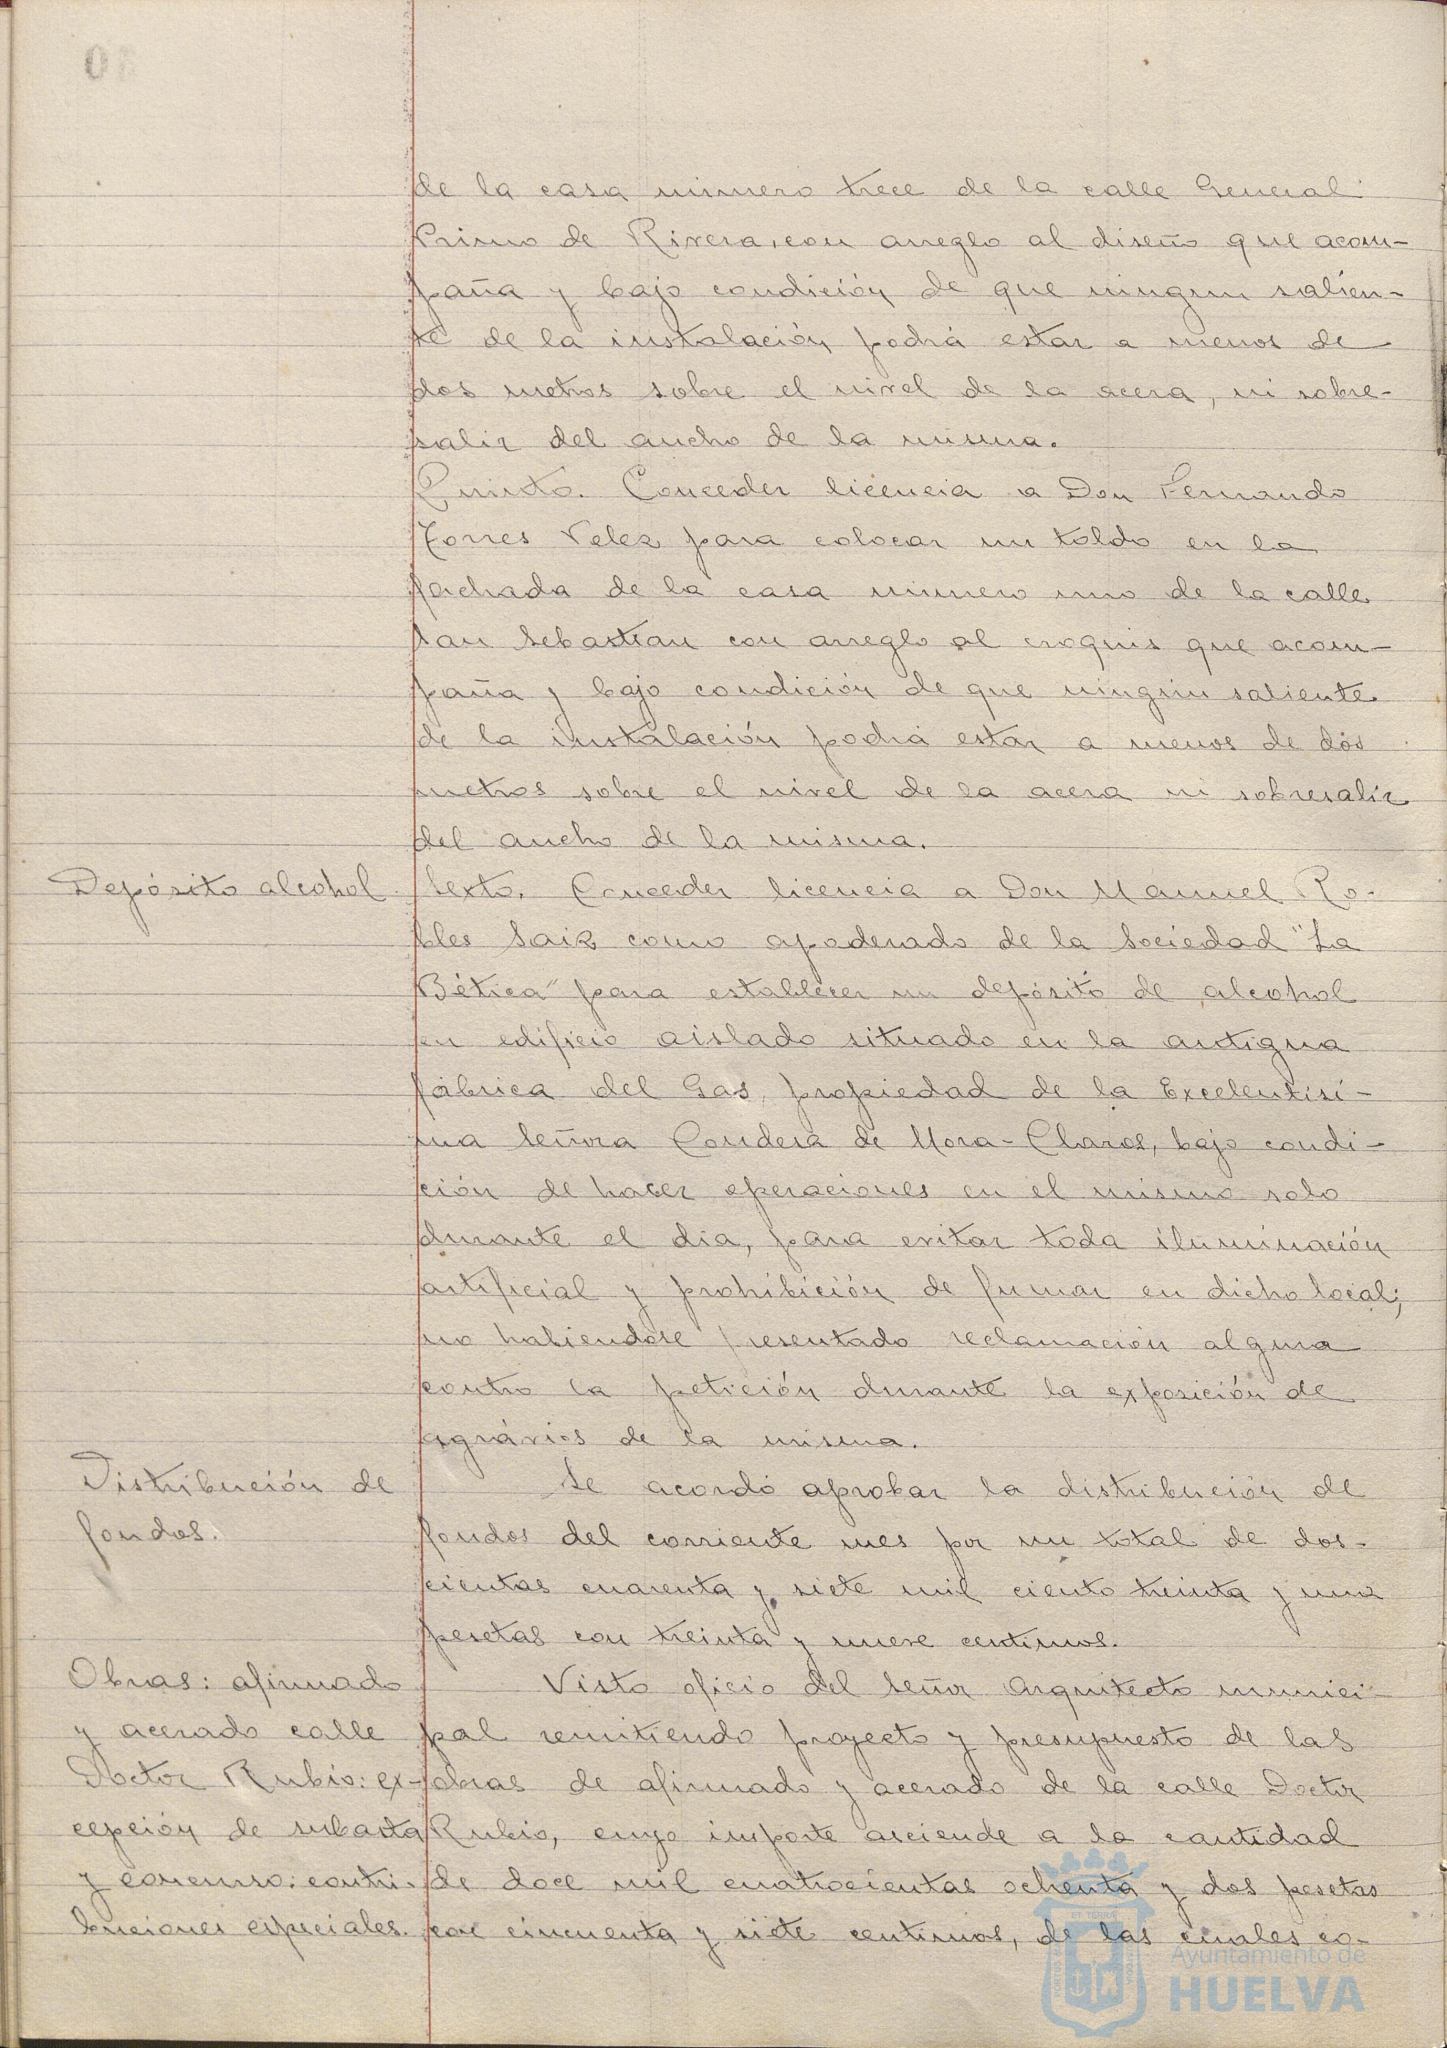 de la casa número trece de la calle General
Primo de Rivera, con arreglo al diseño que acom-
paña y bajo condición de que ningun salien-
te de la instalación podrá estar a menos de
dos metros sobre el nivel de la acera, ni sobre-
salir del ancho de la misma.
Quinto. Conceder licencia a Don Fernando
Torres Velez para colocar un toldo en la
fachada de la casa número uno de la calle
San Sebastian con arreglo al croquis que acom-
paña y bajo condición de que ningún saliente
de la instalación podrá estar a menos de dos
metros sobre el nivel de la acera ni sobresalir
del ancho de la misma.
Depósito alcohol
Sexto. Conceder licencia a Don Manuel Ro-
bles Saiz como apoderado de la Sociedad "La
Bética" para establecer un depósito de alcohol
en edificio aislado situado en la antigua
fábrica del Gas, propiedad de la Excelentísi-
ma Señora Condesa de Mora-Claros, bajo condi-
ción de hacer operaciones en el mismo solo
durante el dia, para evitar toda iluminación
artificial y prohibición de fumar en dicho local;
no habiendose presentado reclamación alguna
contra la petición durante la exposición de
agrávios de la misma.
Distribución de
fondos.
Se acordó aprobar la distribución de
fondos del corriente mes por un total de dos-
cientas cuarenta y siete mil ciento treinta y una
pesetas con treinta y nueve centimos.
Obras: afirmado
y acerado calle
Doctor Rubio: ex-
cepción de subasta
y concurso: contri-
buciones especiales.
Visto oficio del Señor Arquitecto munici-
pal remitiendo proyecto y presupuesto de las
obras de afirmado y acerado de la calle Doctor
Rubio, cuyo importe asciende a la cantidad
de doce mil cuatrocientas ochenta y dos pesetas
con cincuenta y siete centimos, de las cuales co-
Ayuntamiento de
HUELVA